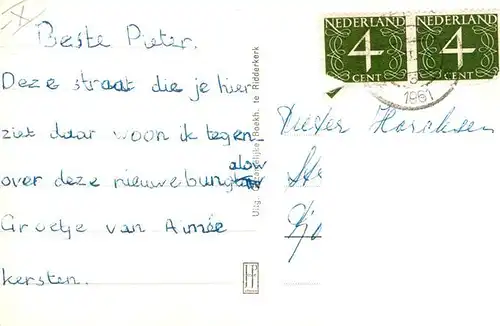 Beste Pieter.
Deze straat die je hier
ziet daar woon ik tegen
over deze nieuwe bungalow
Groetje van Aimée
kersten.
NEDERLAND
4
CENT
NEDERLAND
4
CENT
1961
Pieter
Uitg. Boekh. te Ridderkerk